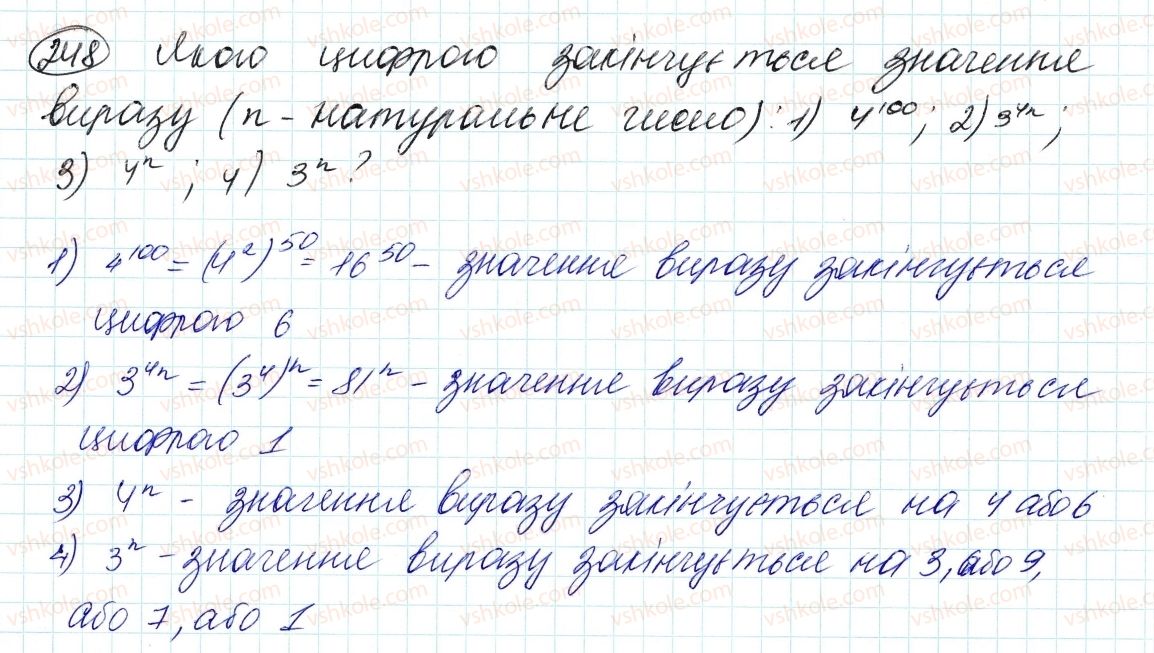 248 Якою цифрою закінчується значення
виразу (n - натуральне число): 1) 4¹⁰⁰; 2) 3⁴ⁿ;
3) 4ⁿ; 4) 3ⁿ?
1) 4¹⁰⁰ = (4²)⁵⁰ = 16⁵⁰ - значення виразу закінчується
цифрою 6
2) 3⁴ⁿ = (3⁴)ⁿ = 81ⁿ - значення виразу закінчується
цифрою 1
3) 4ⁿ - значення виразу закінчується на 4 або 6
4) 3ⁿ - значення виразу закінчується на 3, або 9,
або 7, або 1